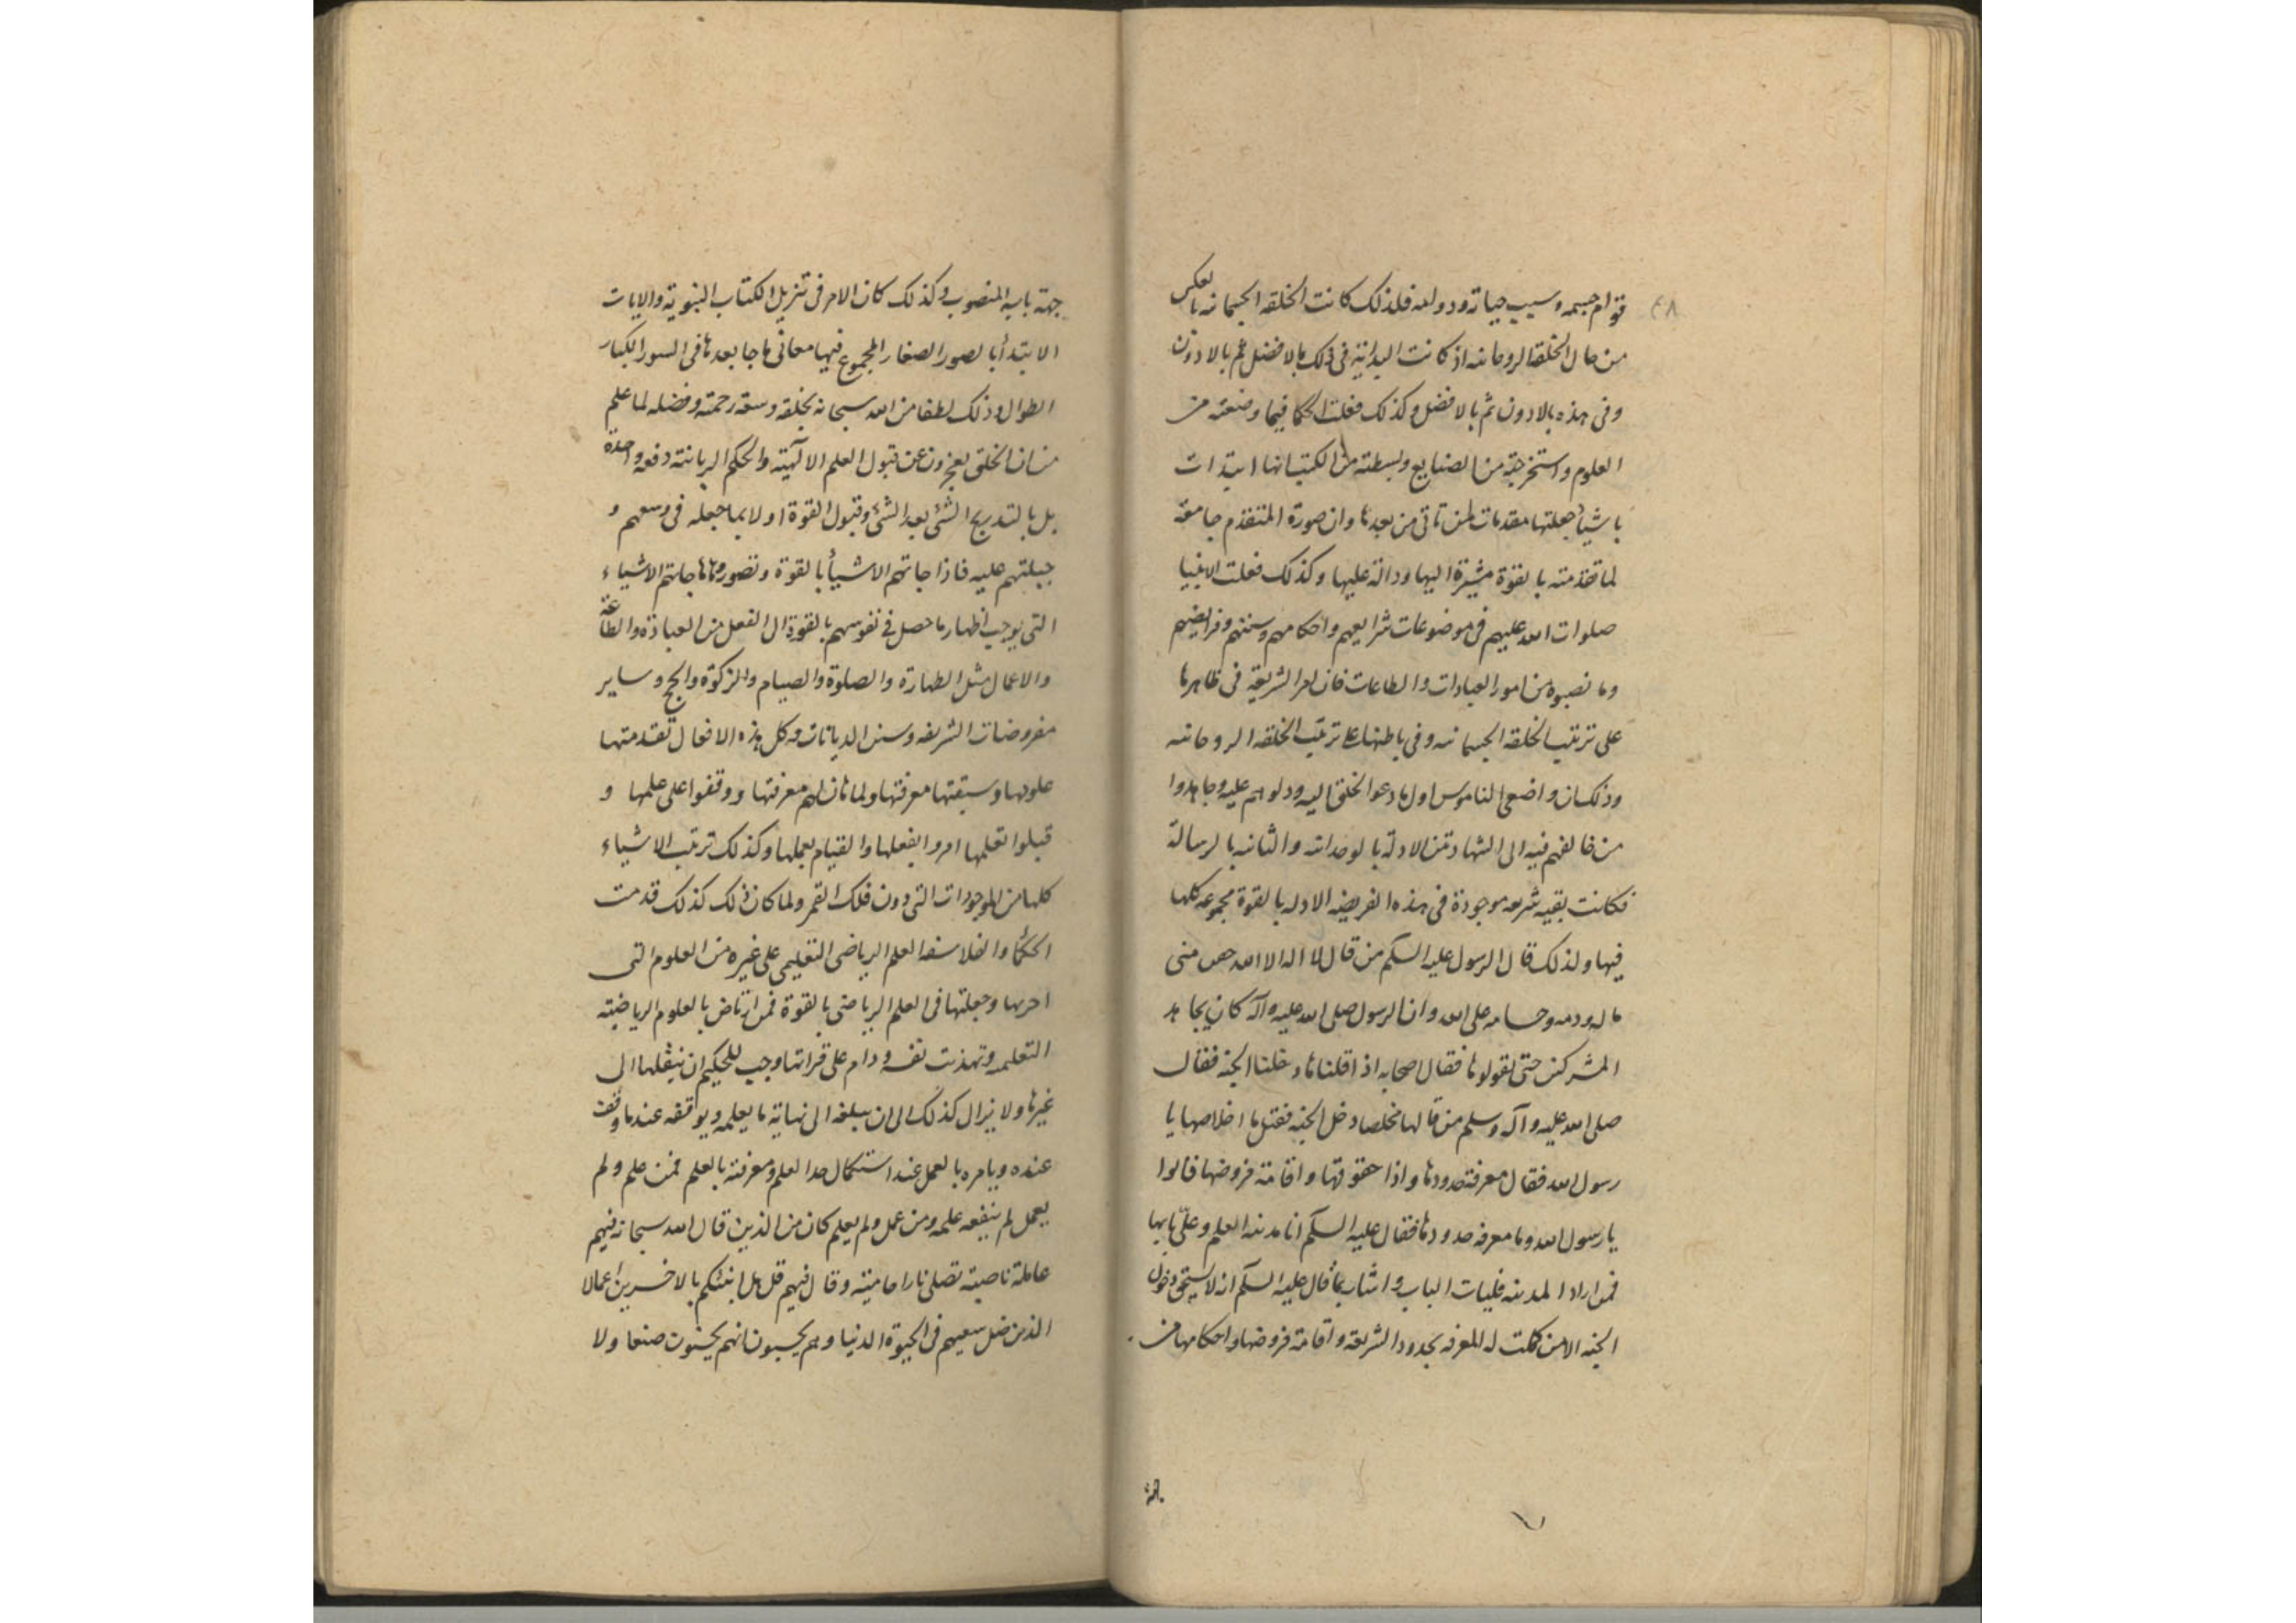 قوام جسمه وسبب حياته ودوامه فلذلك كانت الخلقه الجسمانه بالعكس
من حال الخلقه الروحانيه اذ كانت البداية فى ذلك بالافضل ثم بالادون
وفى هذه بالادون ثم بالافضل وكذلك فعلت الحكما فيما وضعته من
العلوم واستخرجته من الصنايع وبسطته من الكتب انها ابتدات
باشياء جعلتها مقدمات لمن تاتى من بعدها وان صورة المتقدم جامعة
لما تقدمته بالقوة مشيرة اليها ودالة عليها وكذلك فعلت الانبيا
صلوات الله عليهم فى موضوعات شرايعهم واحكامهم وسننهم وفرايضهم
وما نصبوه من امور العبادات والطاعات فان امر الشريعة فى ظاهرها
على ترتيب الخلقه الجسمانيه وفى باطنها على ترتيب الخلقه الروحانيه
وذلك ان واضعى الناموس اول ما دعوا الخلق اليه ودلوهم عليه وجاهدوا
من خالفهم فيه الى الشهادتين الاولة بالوحدانيه والثانيه بالرسالة
فكانت بقيه شريعه موجودة فى هذه الفريضه الاوله بالقوة مجموعه كلها
فيها ولذلك قال الرسول عليه السلام من قال لا اله الا الله حصن منى
ماله ودمه وحسابه على الله وان الرسول صلى الله عليه وآله كان يجاهد
المشركين حتى يقولوها فقال اصحابه اذا قلناها دخلنا الجنه فقال
صلى الله عليه وآله وسلم من قالها مخلصا دخل الجنه فقيل ما اخلاصها يا
رسول الله فقال معرفة حدودها واذا حقوقها واقامة فروضها فقالوا
يا رسول الله وما معرفه حدودها فقال عليه السلام انا مدينه العلم وعلىّ بابها
فمن اراد المدينه فليات الباب واشار بما قال عليه السلام انه لا يستحق دخول
الجنه الا من كملت له المعرفه بحدود الشريعه واقامة فروضها واحكامها من
جهة
جهة بابه المنصوب وكذلك كان الامر فى تنزيل الكتاب النبوية والايات
الابتدأ بالصور الصغار المجموع فيها معانى ما جا بعدها فى السور الكبار
الطوال وذلك لطفا من الله سبحانه بخلقه وسعة رحمته وفضله لما علم
من ان الخلق يعجزون عن قبول العلم الالهية والحكم الربانيه دفعه واحدة
بل بالتدريج الشئ بعد الشئ وقبول القوة اولا بما جعله فى وسعهم و
جبلتهم عليه فاذا جاتهم الاشيأ بالقوة وتصوروها جاتهم الاشياء
التى يوجب اظهار ما حصل فى نفوسهم بالقوة الى الفعل من العبادة والطاعة
والاعمال مثل الطهارة والصلوة والصيام والزكوة والحج وساير
مفروضات الشريعه وسنن الديانات وكل هذه الافعال تقدمتها
علومها وسبقتها معرفتها ولما بان لهم معرفتها ووقفوا على علمها و
قبلوا تعلمها امروا بفعلها والقيام بعملها وكذلك ترتيب الاشياء
كلها من الموجودات التى دون فلك القمر ولما كان ذلك كذلك قدمت
الحكمأ والفلاسفه العلم الرياضى التعليمى على غيره من العلوم التى
اخرتها وجعلتها فى العلم الرياضى بالقوة فمن ارتاض بالعلوم الرياضية
التعليميه وتهذبت نفسه ودام على قراتها وجب للحكيم ان ينقلها الى
غيرها ولا يزال كذلك الى ان يبلغه الى نهاية ما يعلمه ويوقفه عند ما وقف
عنده ويامره بالعمل عند استكمال حد العلم ومعرفة بالعلم فمن علم ولم
يعمل لم ينفعه علمه ومن عمل ولم يعلم كان من الذين قال الله سبحانه فيهم
عاملة ناصبة تصلى نارا حامية وقال فيهم قل هل انبئكم بالاخسرين اعمالا
الذين ضل سعيهم فى الحيوة الدنيا وهم يحسبون انهم يحسنون صنعا ولا